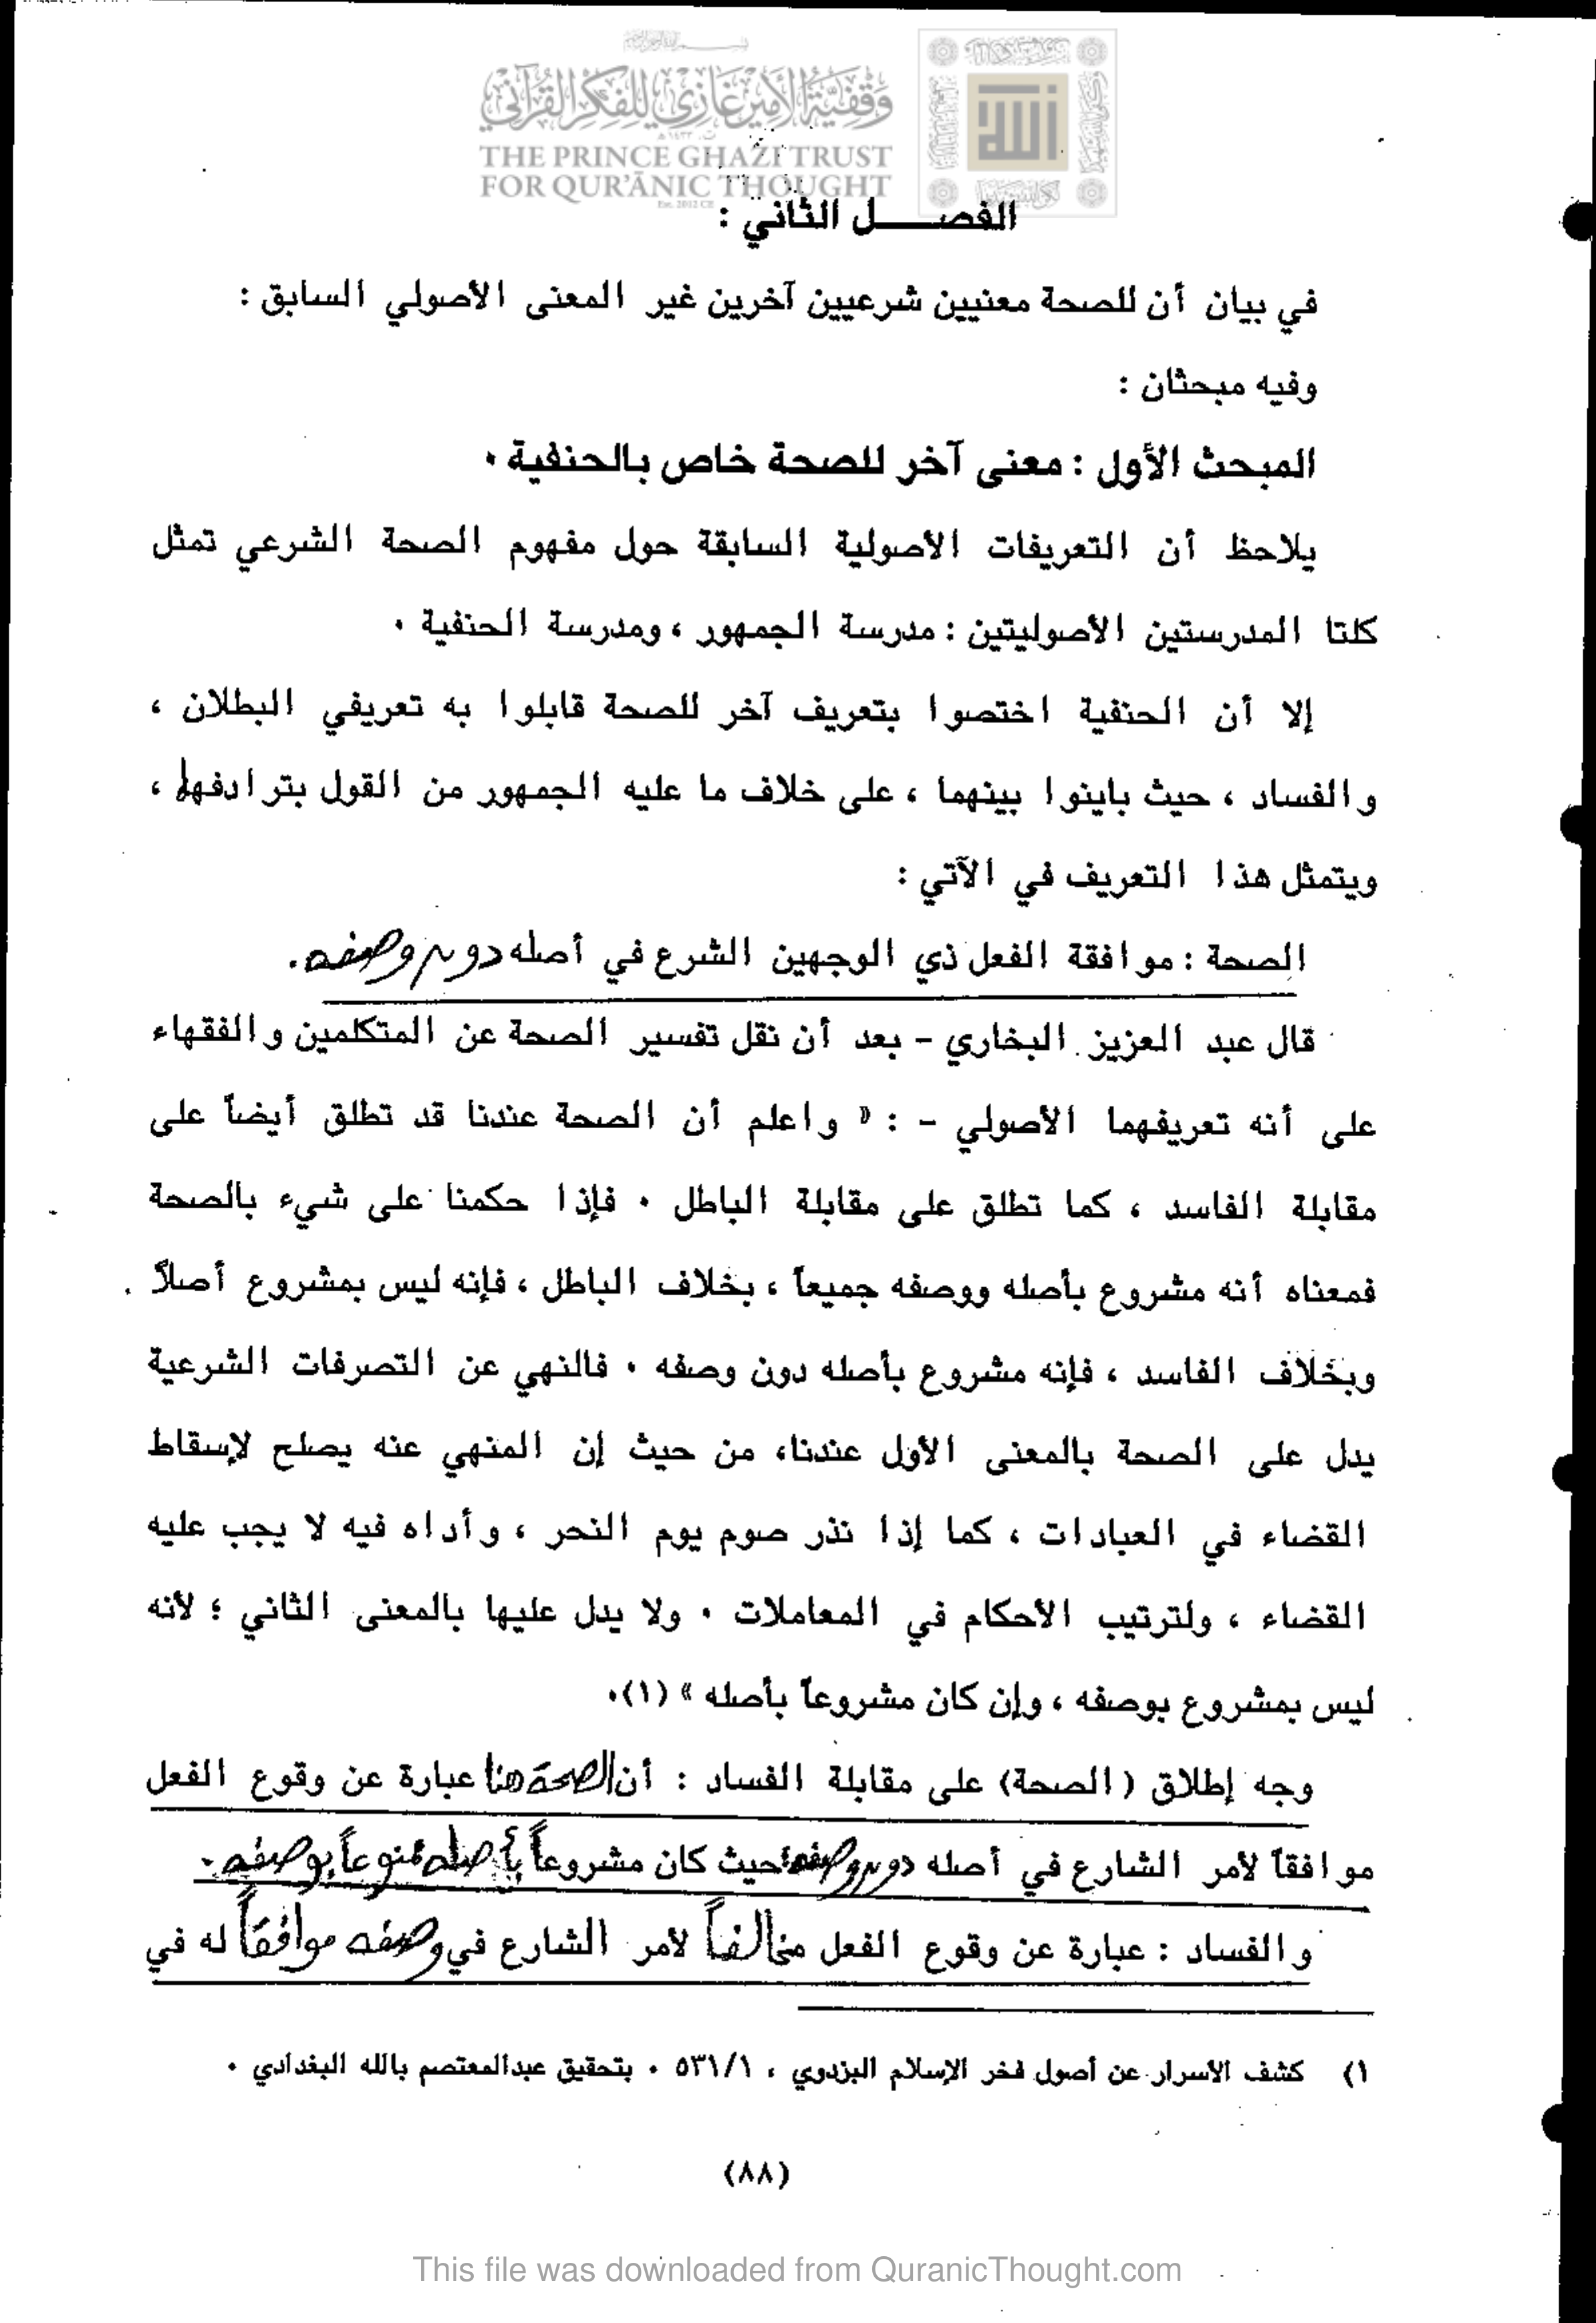 وقفية الأمير غازي للفكر القرآني
THE PRINCE GHAZI TRUST
FOR QUR'ĀNIC THOUGHT
Est. 2012 CE
الله
الفصــــل الثاني :
في بيان أن للصحة معنيين شرعيين آخرين غير المعنى الأصولي السابق :
وفيه مبحثان :
المبحث الأول : معنى آخر للصحة خاص بالحنفية ٠
يلاحظ أن التعريفات الأصولية السابقة حول مفهوم الصحة الشرعي تمثل
كلتا المدرستين الأصوليتين : مدرسة الجمهور ، ومدرسة الحنفية ٠
إلا أن الحنفية اختصوا بتعريف آخر للصحة قابلوا به تعريفي البطلان ،
والفساد ، حيث باينوا بينهما ، على خلاف ما عليه الجمهور من القول بترادفهما ،
ويتمثل هذا التعريف في الآتي :
الصحة : موافقة الفعل ذي الوجهين الشرع في أصله دون وصفه .
قال عبد العزيز البخاري - بعد أن نقل تفسير الصحة عن المتكلمين والفقهاء
على أنه تعريفهما الأصولي - : « واعلم أن الصحة عندنا قد تطلق أيضاً على
مقابلة الفاسد ، كما تطلق على مقابلة الباطل ٠ فإذا حكمنا على شيء بالصحة
فمعناه أنه مشروع بأصله ووصفه جميعاً ، بخلاف الباطل ، فإنه ليس بمشروع أصلاً .
وبخلاف الفاسد ، فإنه مشروع بأصله دون وصفه ٠ فالنهي عن التصرفات الشرعية
يدل على الصحة بالمعنى الأول عندنا، من حيث إن المنهي عنه يصلح لإسقاط
القضاء في العبادات ، كما إذا نذر صوم يوم النحر ، وأداه فيه لا يجب عليه
القضاء ، ولترتيب الأحكام في المعاملات ٠ ولا يدل عليها بالمعنى الثاني ؛ لأنه
ليس بمشروع بوصفه ، وإن كان مشروعاً بأصله » (١)٠
وجه إطلاق (الصحة) على مقابلة الفساد : أن الصحة هنا عبارة عن وقوع الفعل
موافقاً لأمر الشارع في أصله دون وصفه حيث كان مشروعاً بأصله ممنوعاً بوصفه .
والفساد : عبارة عن وقوع الفعل مخالفاً لأمر الشارع في وصفه موافقاً له في
١) كشف الأسرار عن أصول فخر الإسلام البزدوي ، ٥٣١/١ ٠ بتحقيق عبدالمعتصم بالله البغدادي ٠
(٨٨)
This file was downloaded from QuranicThought.com